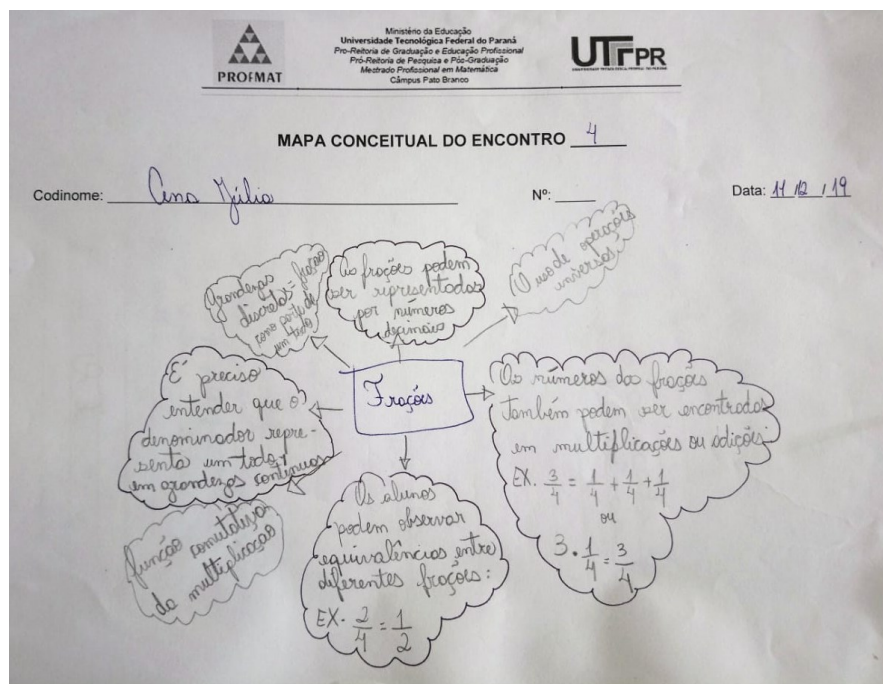 PROFMAT
Ministério da Educação
Universidade Tecnológica Federal do Paraná
Pro-Reitoria de Graduação e Educação Profissional
Pró-Reitoria de Pesquisa e Pós-Graduação
Mestrado Profissional em Matemática
Câmpus Pato Branco
UTFPR
MAPA CONCEITUAL DO ENCONTRO 4
Codinome: Ana Júlia
Nº:
Data: 11/12/19
Grandezas
discretas = fração
como parte de
um todo
As frações podem
ser representadas
por números
decimais
O uso de operações
inversas
Frações
É preciso
entender que o
denominador repre-
senta um todo,
em grandezas contínuas
Os números das frações
também podem ser encontrados
em multiplicações ou adições:
EX. 3/4 = 1/4 + 1/4 + 1/4
ou
3 . 1/4 = 3/4
função comutativa
da multiplicação
Os alunos
podem observar
equivalências entre
diferentes frações:
EX. 2/4 = 1/2